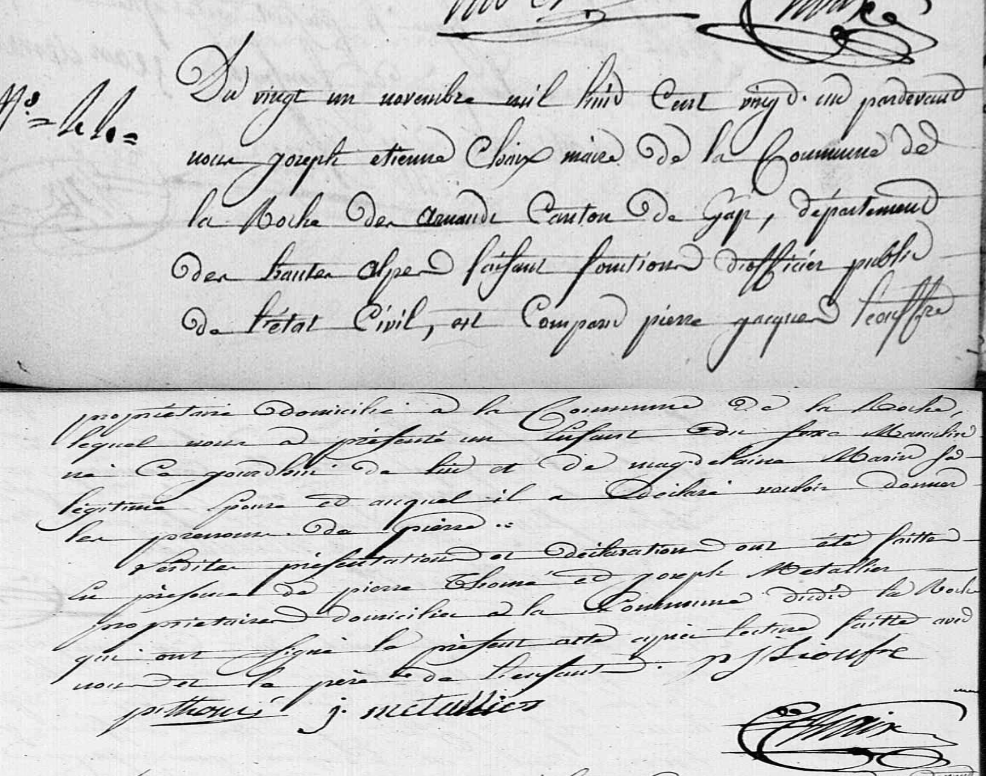 N.º = 44 =
Du vingt un novembre mil huit Cent vingt un pardevant
nous joseph etienne Chaix maire de la Commune de
la Roche des arnauds Canton de Gap, département
des hautes alpes faisant fonctions d'officier public
de l'état Civil, est Comparu pierre jacques lieouffre
propriétaire domicilié a la Commune de la Roche,
lequel nous a présenté un Enfant du sexe Masculin
né Ce jourdhui de lui et de magdelaine Marin sa
légitime Epouse et auquel il a déclaré vouloir donner
les prenoms de pierre.
Lesdites présentation et déclaration ont été faittes
En présence de pierre thomé et joseph Metallier
propriétaires domicilies a la Commune dudit la Roche
qui ont signé le présent acte après lecture faitte avec
nous et le père de l'enfant. p J Lioufre
p. thomé j. metallier
Chaix